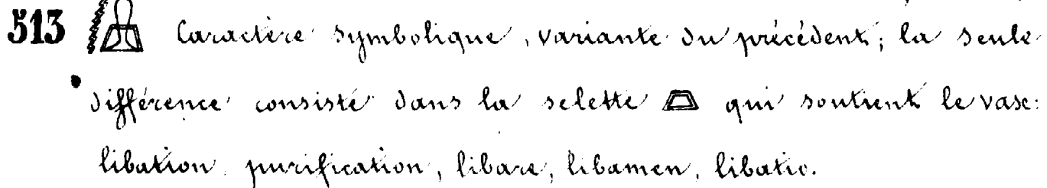 513 Caractère symbolique, variante du précédent; la seule
différence consiste dans la selette qui soutient le vase:
libation, purification, libare, libamen, libatio.